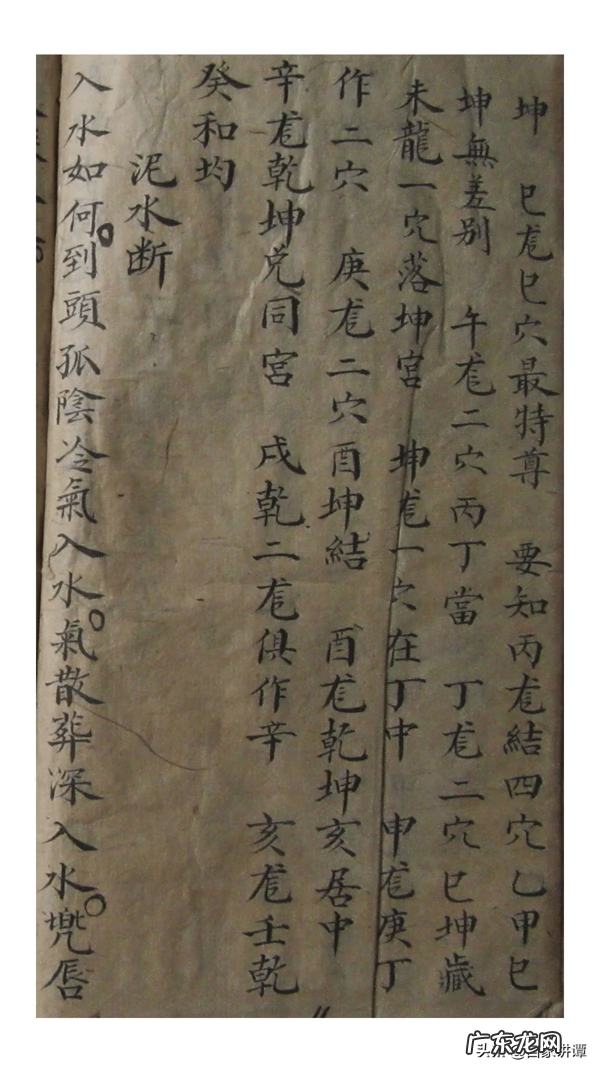 坤　巳龙巳穴最特尊　要知丙龙結四穴乙甲巳
坤無差别　午龙二穴丙丁當　丁龙二穴巳坤藏
未龍一穴落坤宮　坤龙一穴在丁中　申龙庚丁
作二穴　庚龙二穴酉坤結　酉龙乾坤亥居中
辛龙乾坤兑同宮　戌乾二龙俱作辛　亥龙壬乾
癸和均
泥水断
入水如何。到頭孤陰冷氣入水。氣散葬深入水。兠唇
广东龙网